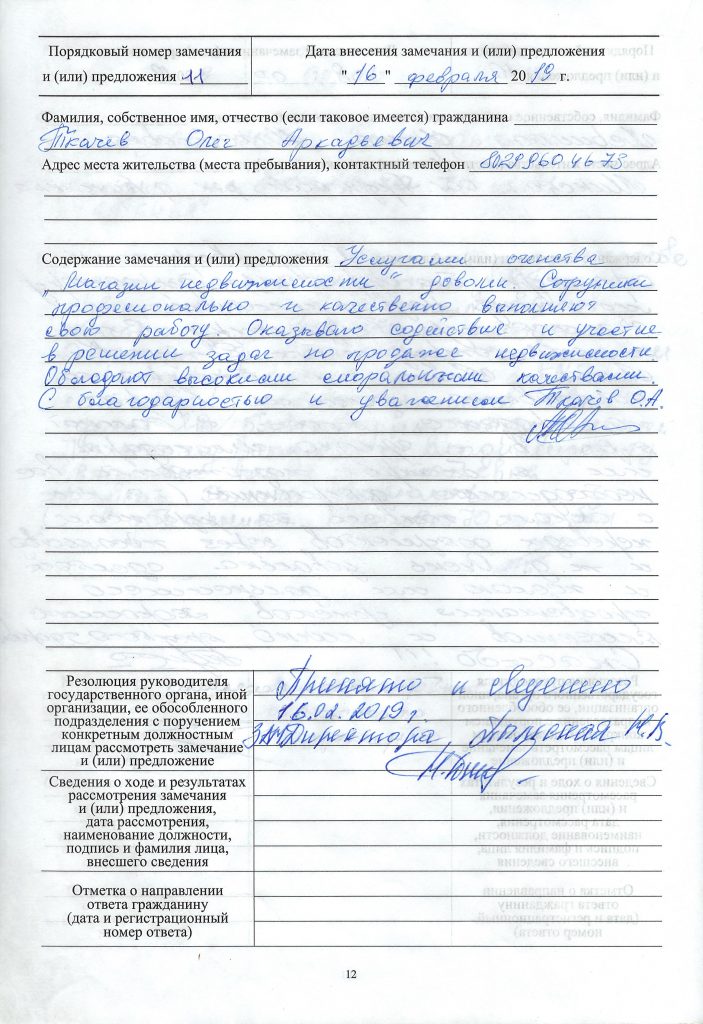 Порядковый номер замечания
и (или) предложения 11
Дата внесения замечания и (или) предложения
"16" февраля 2019 г.
Фамилия, собственное имя, отчество (если таковое имеется) гражданина
Ткачёв Олег Аркадьевич
Адрес места жительства (места пребывания), контактный телефон 8029 960 46 73
Содержание замечания и (или) предложения Услугами агенства
„Магазин недвижимости“ доволен. Сотрудники
профессионально и качественно выполняют
свою работу. Оказывают содействие и участие
в решении задач по продаже недвижимости
Обладают высокими моральными качествами.
С благодарностью и уважением Ткачёв О.А.
Резолюция руководителя
государственного органа, иной
организации, ее обособленного
подразделения с поручением
конкретным должностным
лицам рассмотреть замечание
и (или) предложение
Принято к сведению
16.02.2019г.
Зам директора
Сведения о ходе и результатах
рассмотрения замечания
и (или) предложения,
дата рассмотрения,
наименование должности,
подпись и фамилия лица,
внесшего сведения
Отметка о направлении
ответа гражданину
(дата и регистрационный
номер ответа)
12